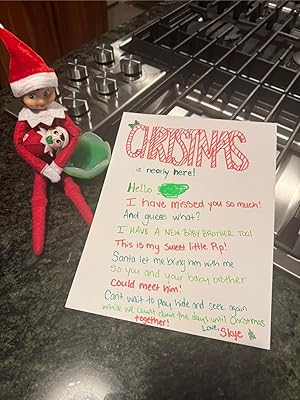 CHRISTMAS
is nearly here!
Hello
I have missed you so much!
And guess what?
I HAVE A NEW BABY BROTHER TOO!
This is my sweet little Pip!
Santa let me bring him with me
so you and your baby brother
could meet him!
Can't wait to play hide and seek again
while we count down the days until Christmas
together!
Love,
Skye